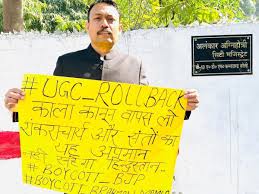 अलंकार अग्निहोत्री
सिटी मजिस्ट्रेट
#UGC_ROLLBACK
काला कानून वापस लो
शंकराचार्य और संतों का
यह अपमान
नहीं सहेगा हिन्दुस्तान..
#BOYCOTT_BJP
#BOYCOTT